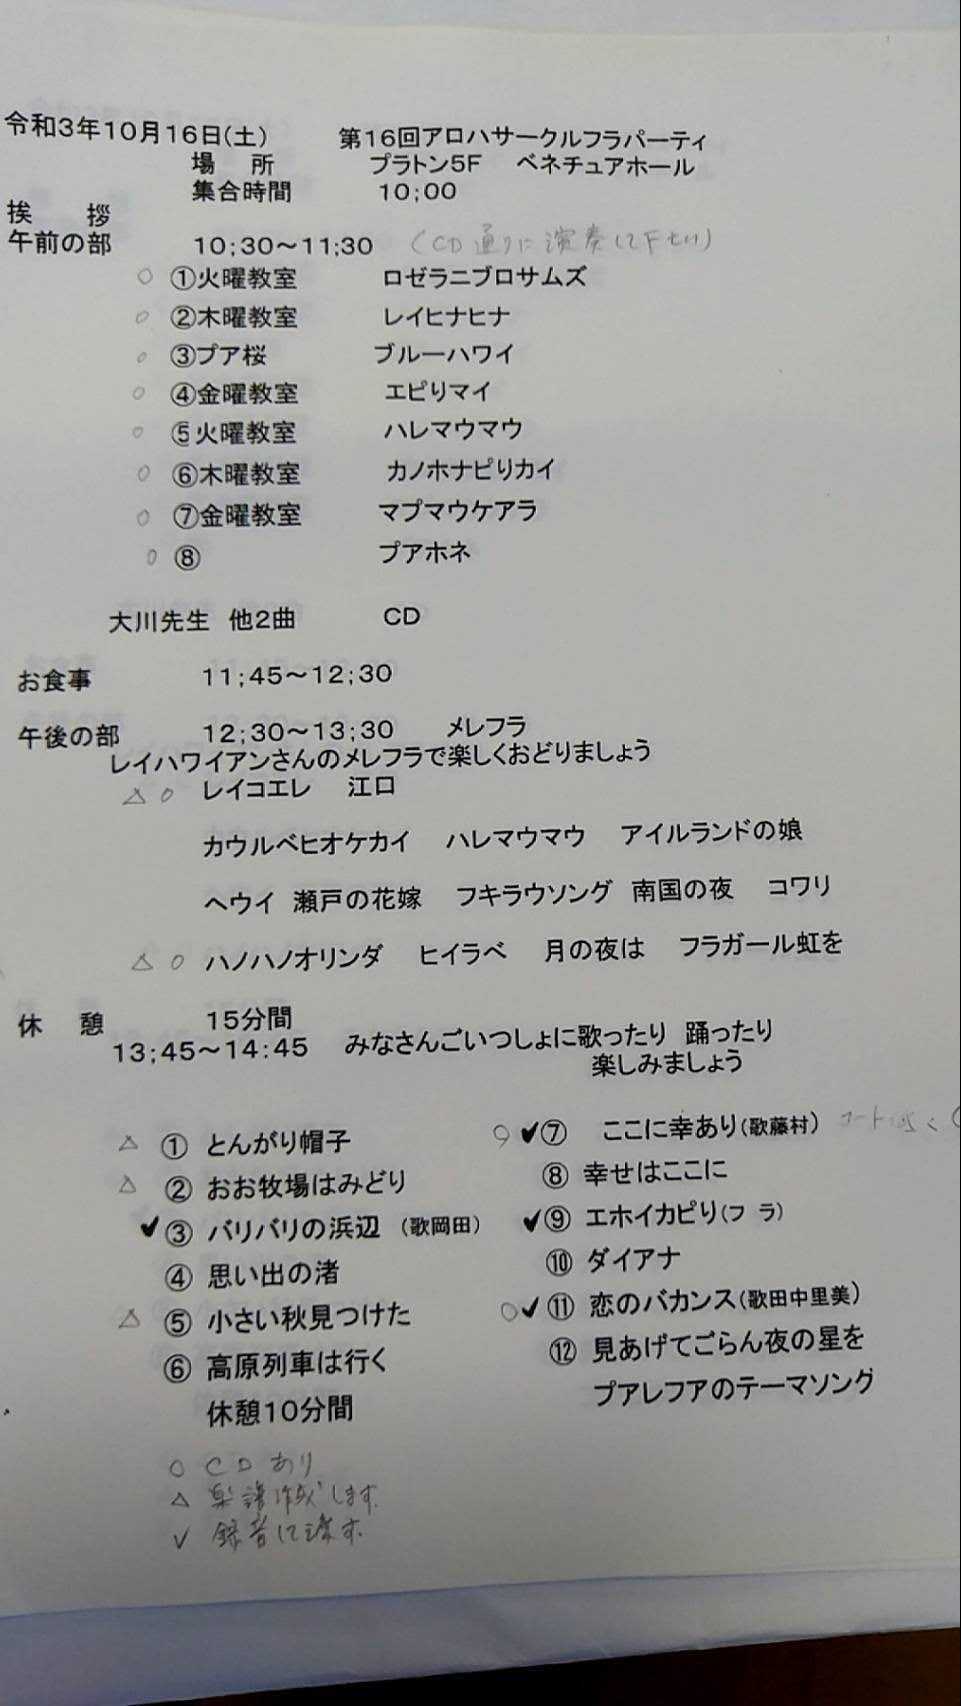 令和3年10月16日(土) 第16回アロハサークルフラパーティ
場 所 プラトン5F ベネチュアホール
集合時間 10;00
挨 拶
午前の部 10;30～11;30 (CD通りに演奏して下せい)
○ ①火曜教室 ロゼラニブロサムズ
○ ②木曜教室 レイヒナヒナ
○ ③プア桜 ブルーハワイ
○ ④金曜教室 エピりマイ
○ ⑤火曜教室 ハレマウマウ
○ ⑥木曜教室 カノホナピりカイ
○ ⑦金曜教室 マプマウケアラ
○ ⑧ プアホネ
大川先生 他2曲 CD
お食事 11;45～12;30
午後の部 12;30～13;30 メレフラ
レイハワイアンさんのメレフラで楽しくおどりましょう
△ ○ レイコエレ 江口
カウルベヒオケカイ ハレマウマウ アイルランドの娘
ヘウイ 瀬戸の花嫁 フキラウソング 南国の夜 コワリ
△ ○ ハノハノオリンダ ヒイラベ 月の夜は フラガール虹を
休 憩 15分間
13;45～14:45 みなさんごいつしょに歌ったり 踊ったり
楽しみましょう
△ ① とんがり帽子
△ ② おお牧場はみどり
✓ ③ バリバリの浜辺 (歌岡田)
④ 思い出の渚
△ ⑤ 小さい秋見つけた
⑥ 高原列車は行く
休憩10分間
○ ✓ ⑦ ここに幸あり(歌藤村)
⑧ 幸せはここに
✓ ⑨ エホイカピり(フ ラ)
⑩ ダイアナ
○ ✓ ⑪ 恋のバカンス(歌田中里美)
⑫ 見あげてごらん夜の星を
プアレフアのテーマソング
○ CDあり
△ 楽譜作成します.
✓ 録音して渡す.